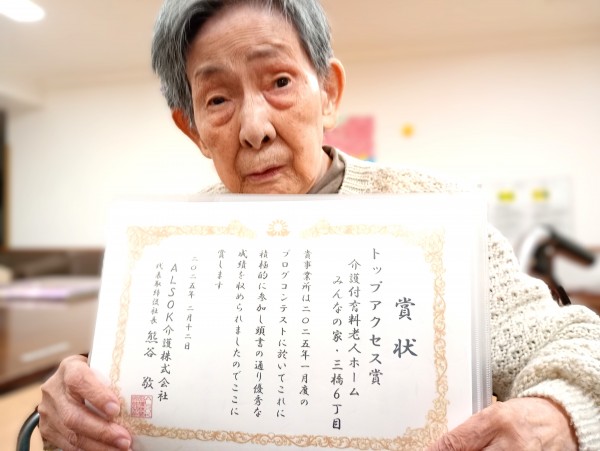 賞状
トップアクセス賞
介護付有料老人ホーム
みんなの家・三橋6丁目
貴事業所は二〇二五年一月度の
ブログコンテストに於いてこれに
積極的に参加し頭書の通り優秀な
成績を収められましたのでここに
賞します
二〇二五年 二月十二日
ALSOK介護株式会社
代表取締役社長 熊谷 敬